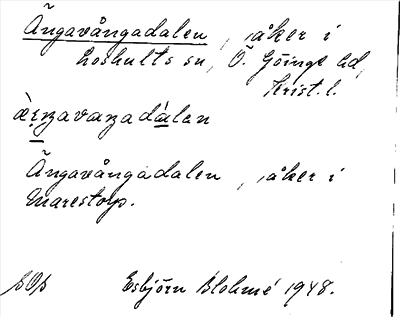 Ängavångadalen, åker i
Loshults sn, Ö. Göinge hd,
Krist. l.
Ängavångadalen, åker i
Marestorp.
Esbjörn Blohmé 1948.